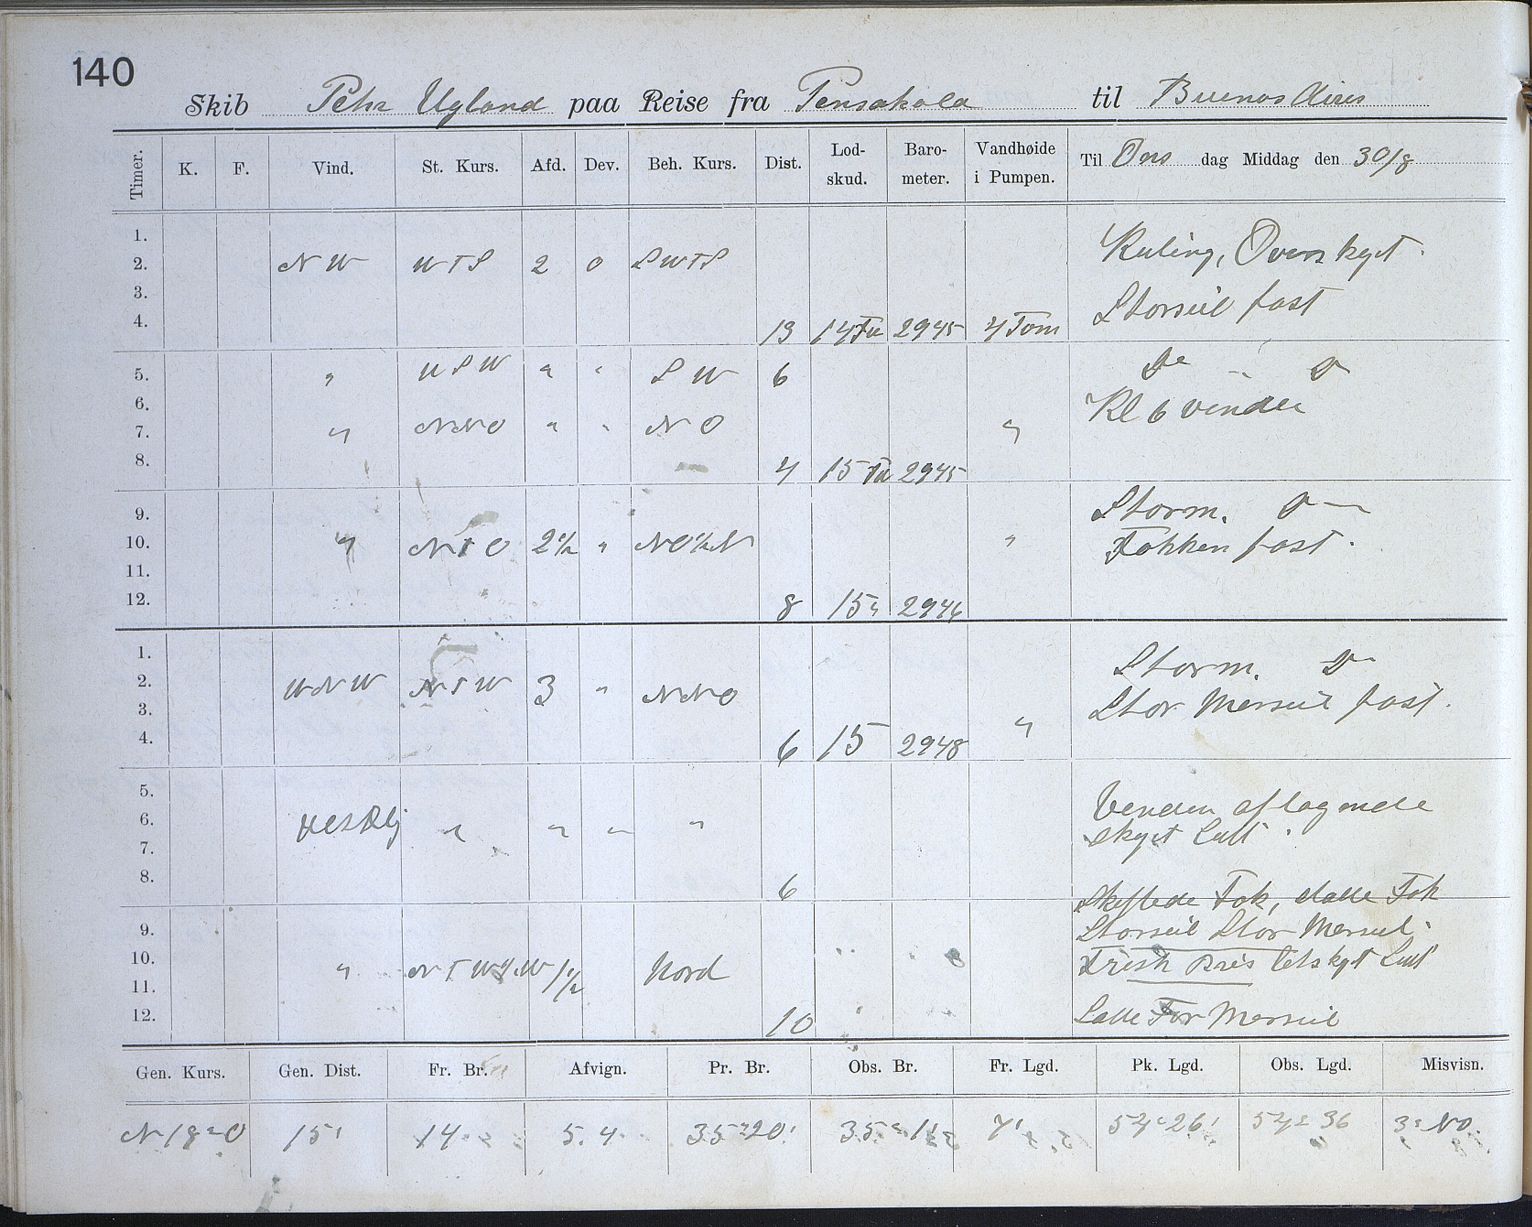 140
Skib Pehr Ugland paa Reise fra Pensakola til Buenos Aires
Timer. K. F. Vind. St. Kurs. Afd. Dev. Beh. Kurs. Dist. Lod-skud. Baro-meter. Vandhøide i Pumpen. Til Ons dag Middag den 30/8
1.
2. NW WTS 2 0 SWTS Kuling, Overskyet.
3. Storseil fast
4. 13 14 Fv 2945 4 Tom
5. " WSW " " SW 6 Do " Do
6. Kl 6 vendte
7. " NNO " " NO "
8. 4 15 Fv 2945
9. Storm. Do
10. " NTO 2 1/2 " NO 1/2 N " Fokken fast.
11.
12. 8 15 " 2946
1. Storm. Do
2. WNW NTW 3 " NNO Stor Merseil fast.
3. "
4. 6 15 2948
5. Vinden aflagende
6. Vestlig " " " " skyet Luft.
7.
8. 6
Skiftede Fok, satte Fok
9. Storseil Stor Merseil.
10. " NTW 1/2 W 1 1/2 Nord Frisk Bris letskyet Luft
11.
12. 10 Satte For Merseil
Gen. Kurs. Gen. Dist. Fr. Br. Afvign. Pr. Br. Obs. Br. Fr. Lgd. Pk. Lgd. Obs. Lgd. Misvisn.
N 18° O 15' 14 5.4 35° 20' 35° 7' 54° 26' 54° 36 3° NO.